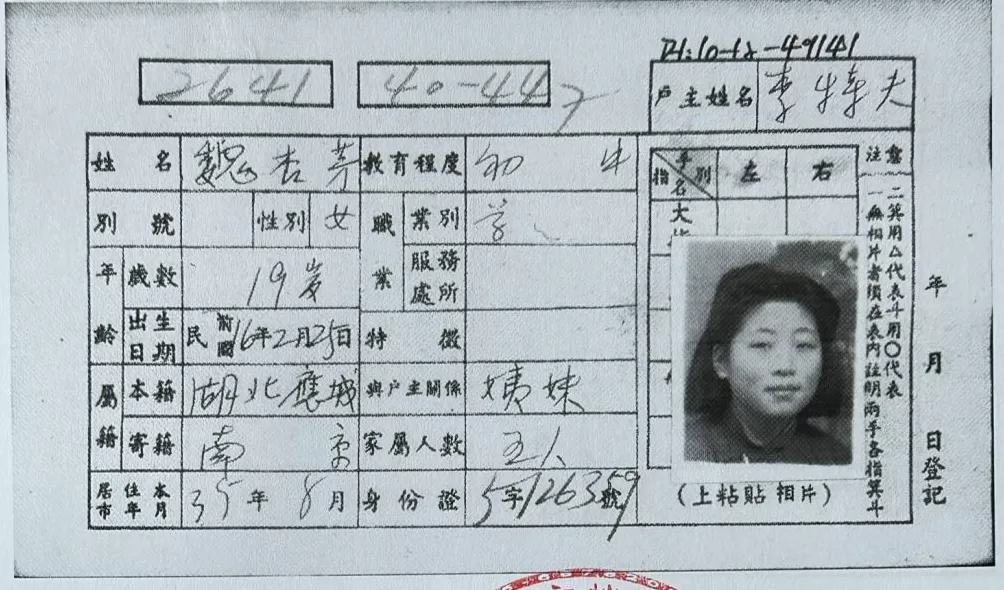 H:10-12-49141
2641
40-44
户主姓名 李
姓名 魏杏芳 教育程度 初中
別號 性別 女 職業 業別 学
年齡 歲數 19岁 服務處所
出生日期 民前國16年2月25日 特徵
屬籍 本籍 湖北應城 與户主關係 姨妹
寄籍 南京 家屬人數 五人
居住本市年月 35年8月 身份證 5字126359號
指名 手別 左 右
大
(上粘貼相片)
注意
一 無相片者須在表內註明兩手各指箕斗
二 箕用△代表斗用○代表
年 月 日登記